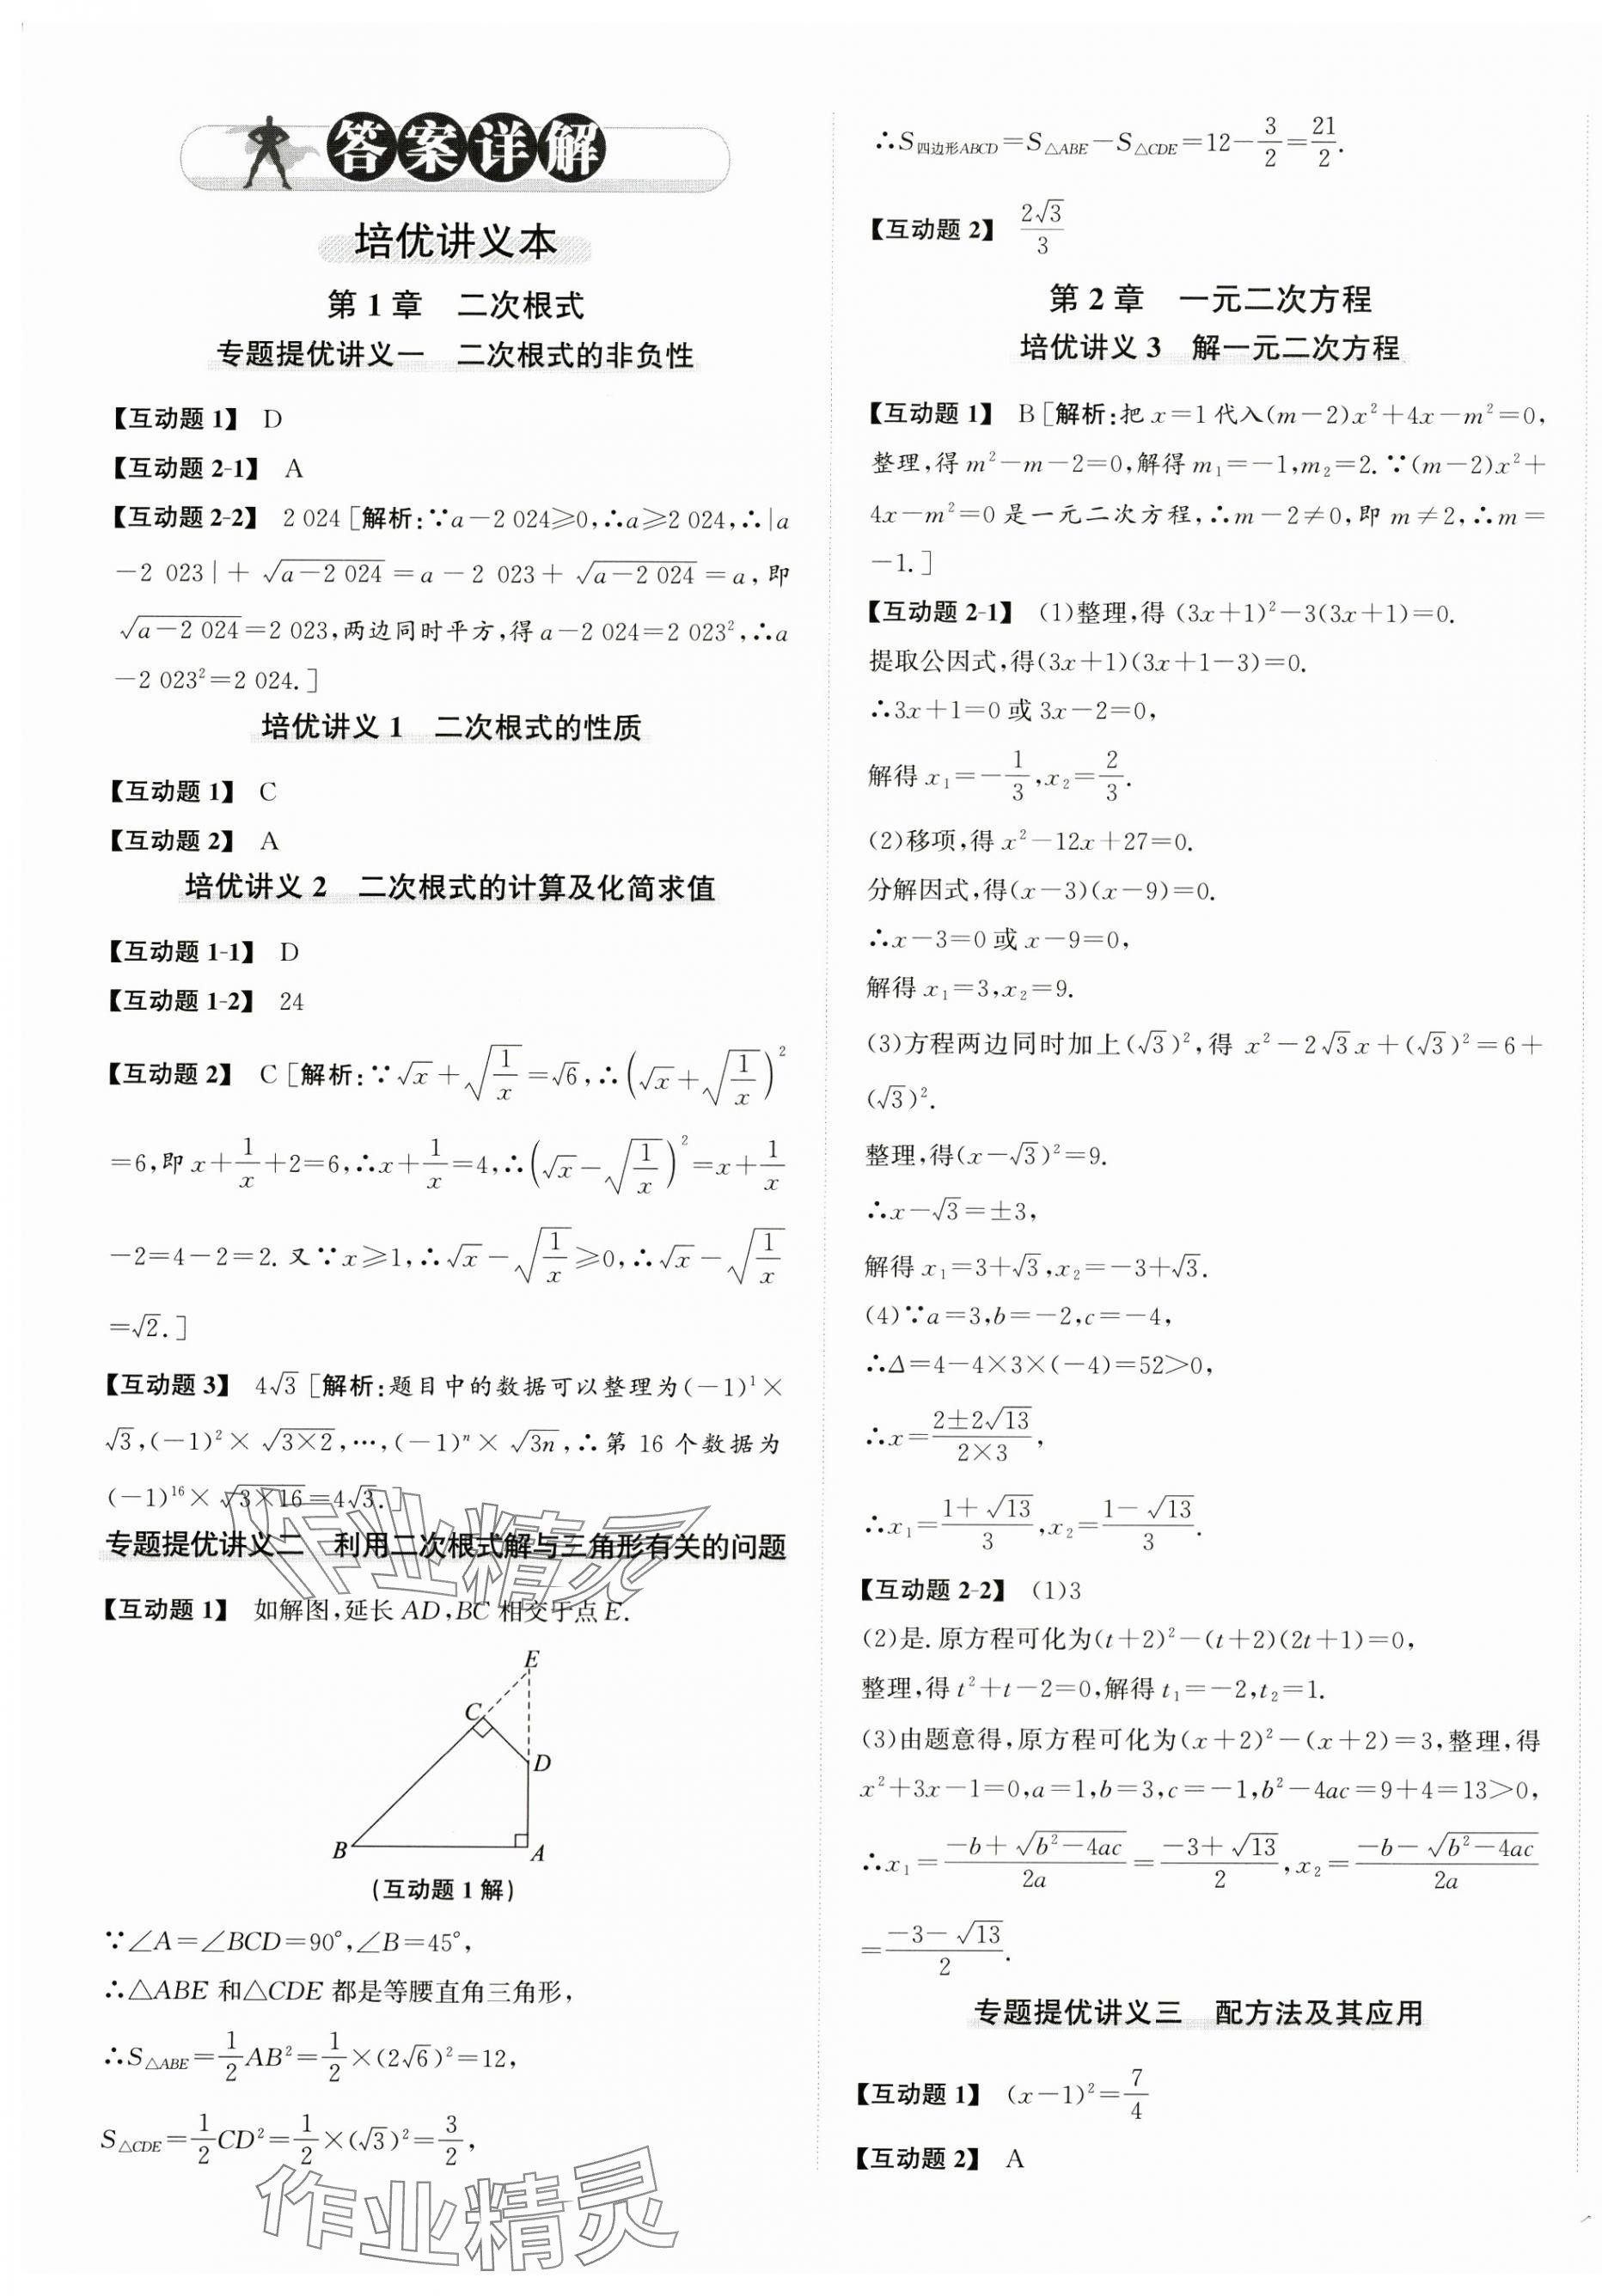 答案详解
培优讲义本
第1章 二次根式
专题提优讲义一 二次根式的非负性
【互动题1】 D
【互动题2-1】 A
【互动题2-2】 2 024[解析:∵a-2 024≥0,∴a≥2 024,∴|a
-2 023|+√(a-2 024)=a-2 023+√(a-2 024)=a,即
√(a-2 024)=2 023,两边同时平方,得a-2 024=2 023²,∴a
-2 023²=2 024.]
培优讲义1 二次根式的性质
【互动题1】 C
【互动题2】 A
培优讲义2 二次根式的计算及化简求值
【互动题1-1】 D
【互动题1-2】 24
【互动题2】 C[解析:∵√x+√(1/x)=√6,∴(√x+√(1/x))²
=6,即x+1/x+2=6,∴x+1/x=4,∴(√x-√(1/x))²=x+1/x
-2=4-2=2.又∵x≥1,∴√x-√(1/x)≥0,∴√x-√(1/x)
=√2.]
【互动题3】 4√3[解析:题目中的数据可以整理为(-1)¹×
√3,(-1)²×√(3×2),…,(-1)ⁿ×√(3n),∴第16个数据为
(-1)¹⁶×√(3×16)=4√3.]
专题提优讲义二 利用二次根式解与三角形有关的问题
【互动题1】 如解图,延长AD,BC相交于点E.
E
C
D
B
A
(互动题1解)
∵∠A=∠BCD=90°,∠B=45°,
∴△ABE和△CDE都是等腰直角三角形,
∴S△ABE=1/2AB²=1/2×(2√6)²=12,
S△CDE=1/2CD²=1/2×(√3)²=3/2,
∴S四边形ABCD=S△ABE-S△CDE=12-3/2=21/2.
【互动题2】 2√3/3
第2章 一元二次方程
培优讲义3 解一元二次方程
【互动题1】 B[解析:把x=1代入(m-2)x²+4x-m²=0,
整理,得m²-m-2=0,解得m₁=-1,m₂=2.∵(m-2)x²+
4x-m²=0是一元二次方程,∴m-2≠0,即m≠2,∴m=
-1.]
【互动题2-1】 (1)整理,得(3x+1)²-3(3x+1)=0.
提取公因式,得(3x+1)(3x+1-3)=0.
∴3x+1=0或3x-2=0,
解得x₁=-1/3,x₂=2/3.
(2)移项,得x²-12x+27=0.
分解因式,得(x-3)(x-9)=0.
∴x-3=0或x-9=0,
解得x₁=3,x₂=9.
(3)方程两边同时加上(√3)²,得x²-2√3x+(√3)²=6+
(√3)².
整理,得(x-√3)²=9.
∴x-√3=±3,
解得x₁=3+√3,x₂=-3+√3.
(4)∵a=3,b=-2,c=-4,
∴Δ=4-4×3×(-4)=52>0,
∴x=(2±2√13)/(2×3),
∴x₁=(1+√13)/3,x₂=(1-√13)/3.
【互动题2-2】 (1)3
(2)是.原方程可化为(t+2)²-(t+2)(2t+1)=0,
整理,得t²+t-2=0,解得t₁=-2,t₂=1.
(3)由题意得,原方程可化为(x+2)²-(x+2)=3,整理,得
x²+3x-1=0,a=1,b=3,c=-1,b²-4ac=9+4=13>0,
∴x₁=(-b+√(b²-4ac))/2a=(-3+√13)/2,x₂=(-b-√(b²-4ac))/2a
=(-3-√13)/2.
专题提优讲义三 配方法及其应用
【互动题1】 (x-1)²=7/4
【互动题2】 A
作业精灵
作业精灵